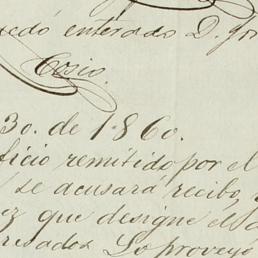 quedó enterado D. Jo
Cosio.
30. de 1860.
ficio remitido por el
se acusará recibo
ez que designe el d
resados. Lo proveyó